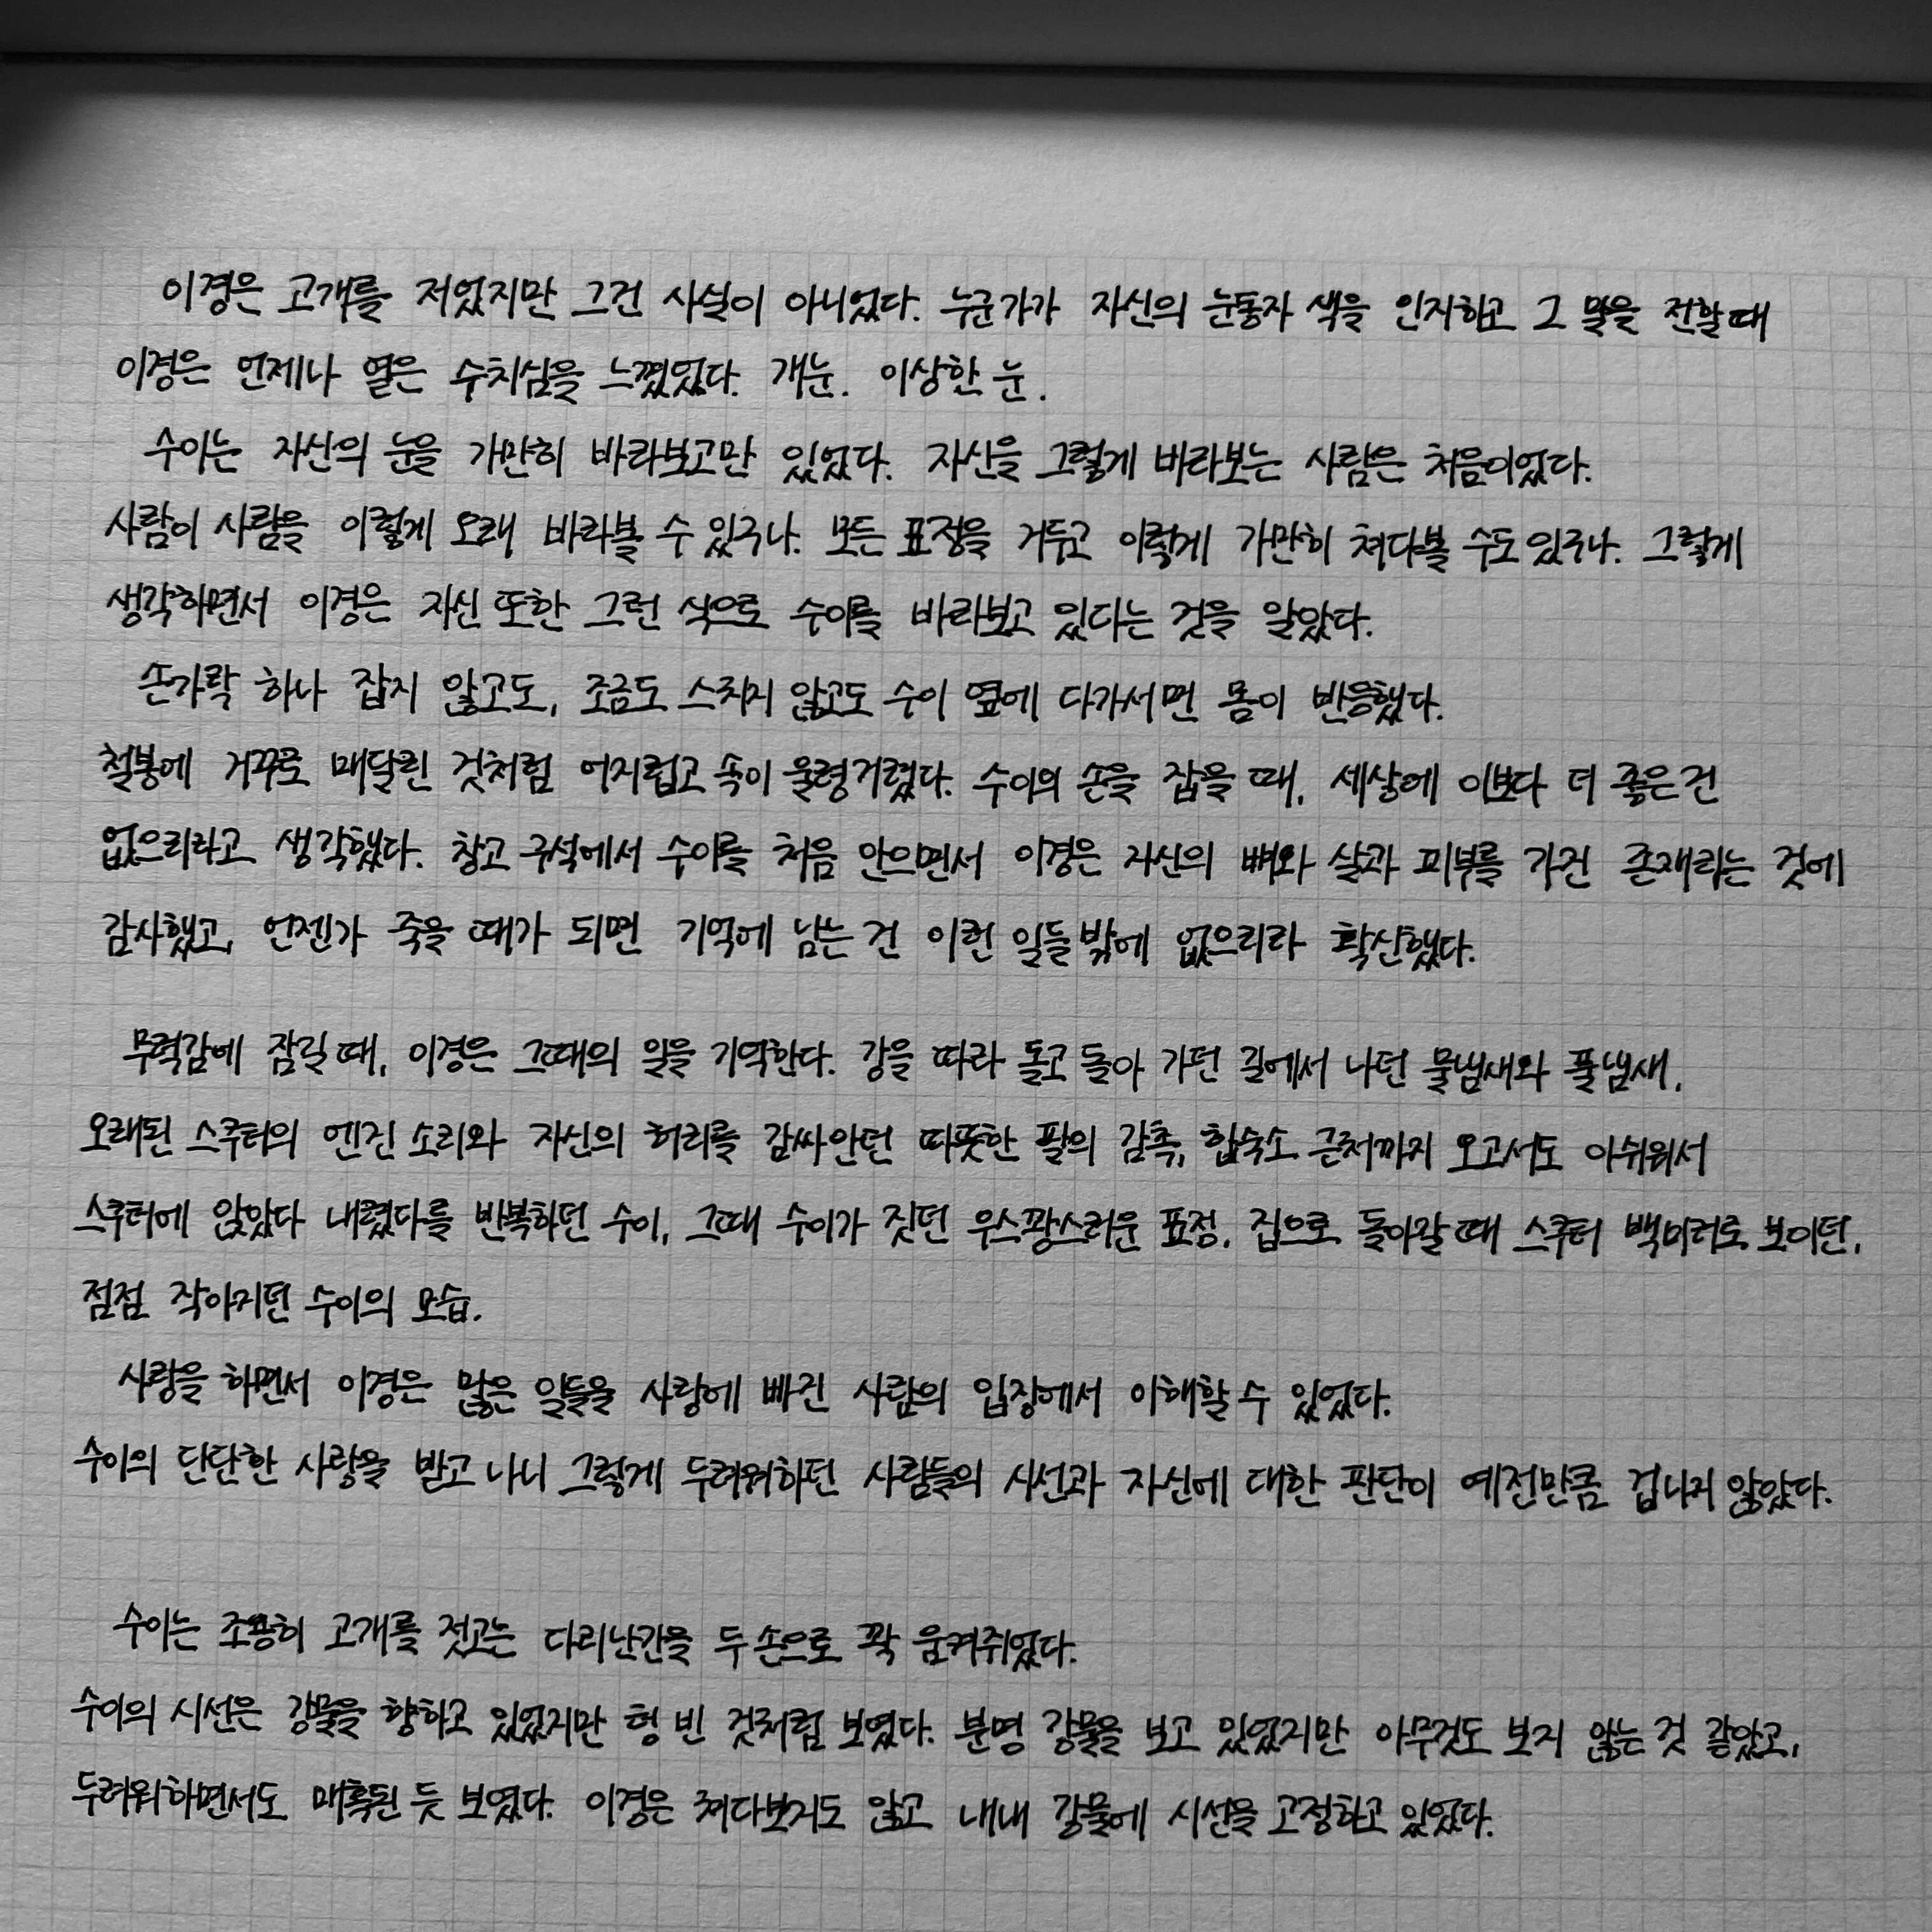 이경은 고개를 저었지만 그건 사실이 아니었다. 누군가가 자신의 눈동자 색을 인지하고 그 말을 전할 때
이경은 언제나 옅은 수치심을 느꼈었다. 개눈. 이상한 눈.
수이는 자신의 눈을 가만히 바라보고만 있었다. 자신을 그렇게 바라보는 사람은 처음이었다.
사람이 사람을 이렇게 오래 바라볼 수 있구나. 모든 표정을 거두고 이렇게 가만히 쳐다볼 수도 있구나. 그렇게
생각하면서 이경은 자신 또한 그런 식으로 수이를 바라보고 있다는 것을 알았다.
손가락 하나 잡지 않고도, 조금도 스치지 않고도 수이 옆에 다가서면 몸이 반응했다.
철봉에 거꾸로 매달린 것처럼 어지럽고 속이 울렁거렸다. 수이의 손을 잡을 때, 세상에 이보다 더 좋은 건
없으리라고 생각했다. 창고 구석에서 수이를 처음 안으면서 이경은 자신의 뼈와 살과 피부를 가진 존재라는 것에
감사했고, 언젠가 죽을 때가 되면 기억에 남는 건 이런 일들밖에 없으리라 확신했다.
무력감에 잠길 때, 이경은 그때의 일을 기억한다. 강을 따라 돌고 돌아 가던 길에서 나던 물냄새와 풀냄새,
오래된 스쿠터의 엔진 소리와 자신의 허리를 감싸안던 따뜻한 팔의 감촉, 합숙소 근처까지 오고서도 아쉬워서
스쿠터에 앉았다 내렸다를 반복하던 수이, 그때 수이가 짓던 우스꽝스러운 표정. 집으로 돌아갈 때 스쿠터 백미러로 보이던,
점점 작아지던 수이의 모습.
사랑을 하면서 이경은 많은 일들을 사랑에 빠진 사람의 입장에서 이해할 수 있었다.
수이의 단단한 사랑을 받고 나니 그렇게 두려워하던 사람들의 시선과 자신에 대한 판단이 예전만큼 겁나지 않았다.
수이는 조용히 고개를 젓고는 다리난간을 두 손으로 꽉 움켜쥐었다.
수이의 시선은 강물을 향하고 있었지만 텅 빈 것처럼 보였다. 분명 강물을 보고 있었지만 아무것도 보지 않는 것 같았고,
두려워하면서도 매혹된 듯 보였다. 이경은 쳐다보지도 않고 내내 강물에 시선을 고정하고 있었다.